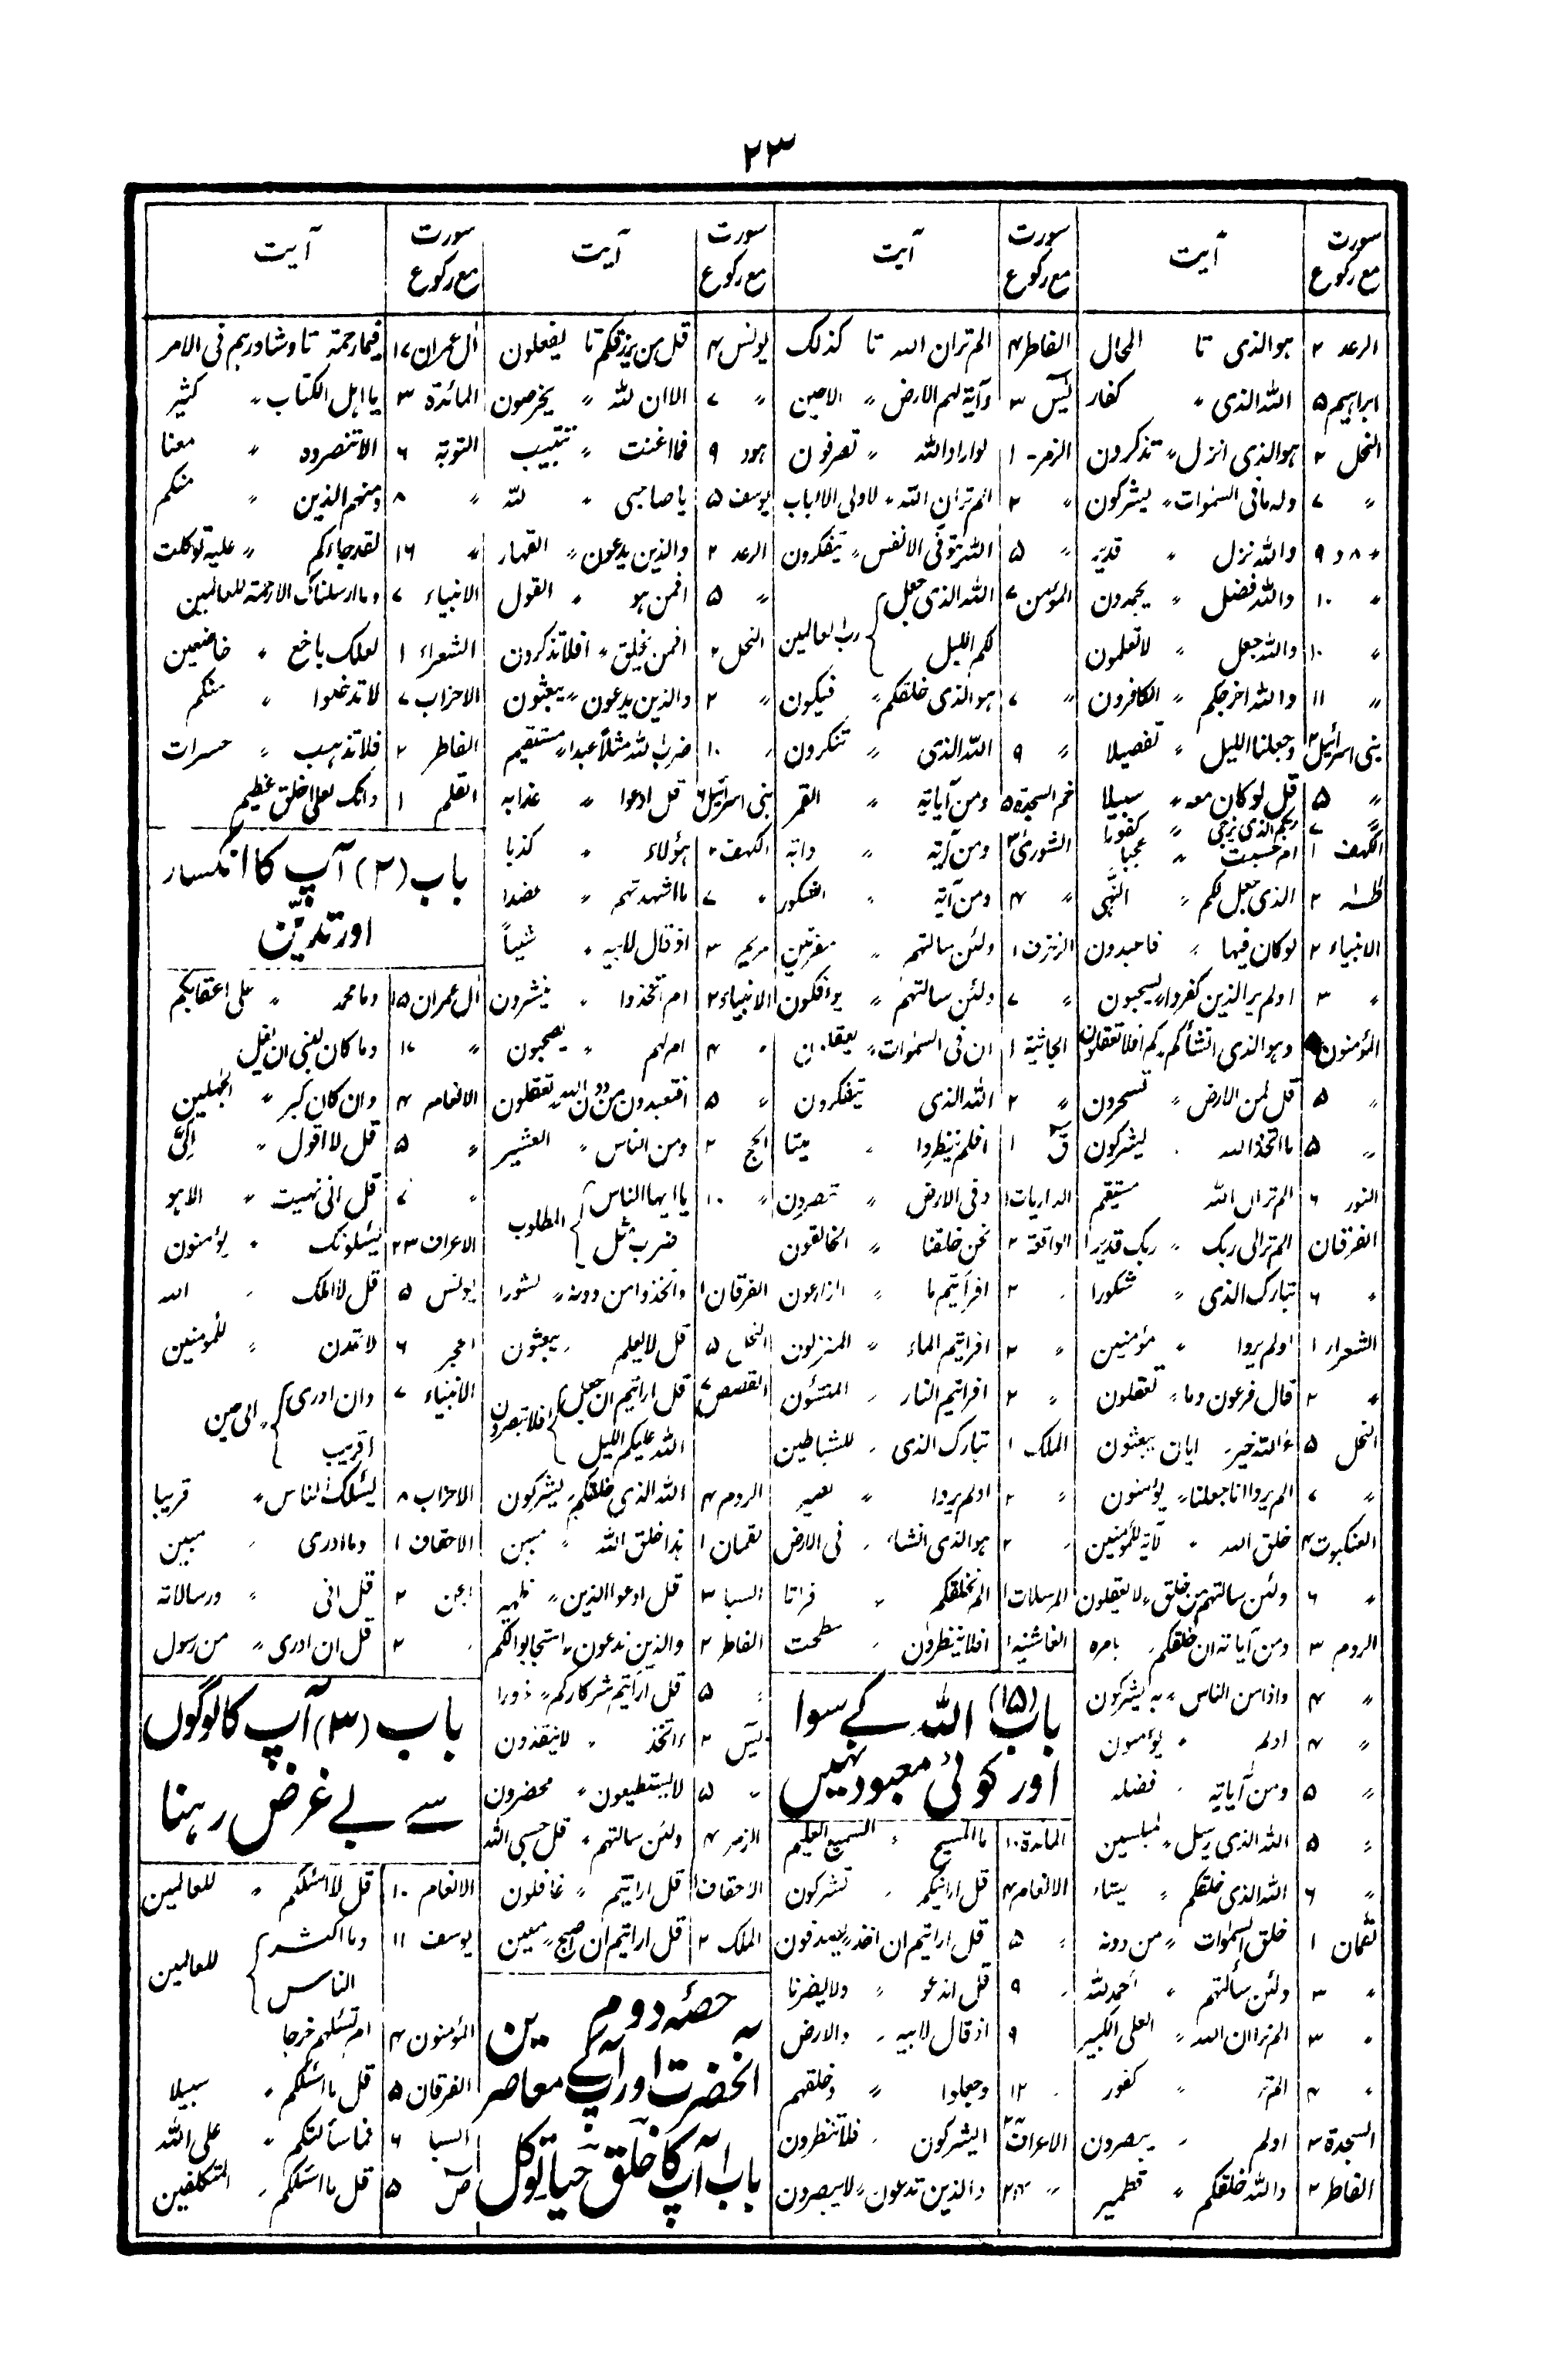 ۲۳
سورت مع رکوع آیت
الرعد ۲ ہوالذی تا المحال
ابراہیم ۵ اللہ الذی ״ کفار
النحل ۲ ہوالذی انزل ״ تذکرون
״ ۷ ولہ ما فی السمٰوات ״ یشرکون
״ ۸ و ۹ واللہ نزل ״ قدیر
״ ۱۰ واللہ فضل ״ یجحدون
״ ۱۰ واللہ جعل ״ لا تعلمون
״ ۱۱ واللہ اخرجکم ״ الکافرون
بنی اسرائیل ۲ وجعلنا اللیل ״ تفصیلا
״ ۵ قل لو کان معہ ״ سبیلا
״ ۷ ربکم الذی یزجی ״ کفورا
الکہف ۱ ام حسبت ״ عجبا
طٰہٰ ۲ الذی جعل لکم ״ النہی
الانبیاء ۲ لو کان فیہا ״ فاعبدون
״ ۳ اولم یر الذین کفروا ״ یسبحون
المؤمنون وہو الذی انشأکم ״ کم افلا تعقلون
״ ۵ قل لمن الارض ״ تسحرون
״ ۵ ما اتخذ اللہ ״ یشرکون
النور ۶ الم تر ان اللہ مستقیم
الفرقان الم تر الی ربک ״ ربک قدیرا
״ ۶ تبارک الذی ״ شکورا
الشعراء ۱ اولم یروا ״ مؤمنین
״ ۲ قال فرعون وما ״ تعقلون
النحل ۵ ءاللہ خیر ״ ایان یبعثون
״ ۷ الم یروا انا جعلنا ״ یؤمنون
العنکبوت ۴ خلق اللہ ״ لآیۃ للمؤمنین
״ ۶ ولئن سالتہم من خلق ״ لا یعقلون
الروم ۳ ومن آیاتہ ان خلقکم ״ بامرہ
״ ۴ واذا مس الناس ״ بہ یشرکون
״ ۴ اولم ״ یؤمنون
״ ۵ ومن آیاتہ ״ فضلہ
״ ۵ اللہ الذی یرسل ״ لمبلسین
״ ۶ اللہ الذی خلقکم ״ یشاء
لقمان ۱ خلق السموات ״ من دونہ
״ ۳ ولئن سألتہم ״ الحمد للہ
״ ۳ الم تر ان اللہ ״ العلی الکبیر
״ ۴ الم تر ״ کفور
السجدۃ ۳ اولم ״ یبصرون
الفاطر ۲ واللہ خلقکم ״ قطمیر
سورت مع رکوع آیت
الفاطر ۴ الم تر ان اللہ تا کذلک
یٰس ۳ وآیۃ لہم الارض ״ الاحین
الزمر ۱ لو اراد اللہ ״ تصرفون
״ ۲ الم تر ان اللہ ״ لاولی الالباب
״ ۵ اللہ یتوفی الانفس ״ یتفکرون
المؤمن ۷ اللہ الذی جعل لکم اللیل ״ رب العالمین
״ ۷ ہو الذی خلقکم ״ فیکون
״ ۹ اللہ الذی ״ تنکرون
حم السجدۃ ۵ ومن آیاتہ ״ القمر
الشوریٰ ۳ ومن آیتہ ״ دابۃ
״ ۴ ومن آیۃ ״ الشکور
الزخرف ۱ ولئن سالتہم ״ مقرنین
״ ۷ ولئن سالتہم ״ یوفکون
الجاثیۃ ۱ ان فی السمٰوات ״ یعقلون
״ ۲ اللہ الذی یتفکرون
قٓ ۱ افلم ینظروا ״ میتا
الداریات ۱ وفی الارض ״ تبصرون
الواقعۃ ۲ نحن خلقنا ״ الخالقون
״ ۲ افرأیتم ما ״ الزارعون
״ ۲ افرأیتم الماء ״ المنزلون
״ ۲ افرأیتم النار ״ المنشئون
الملک ۱ تبارک الذی ״ للشیاطین
״ ۲ اولم یروا ״ بصیر
״ ۲ ہو الذی انشا ״ فی الارض
المرسلات ۱ الم نخلقکم ״ فراتا
الغاشیۃ ۱ افلا ینظرون ״ سطحت
باب (۱۵) اللہ کے سوا
اور کوئی معبود نہیں
المائدۃ ۱۰ ما المسیح ״ السمیع العلیم
الانعام ۴ قل ارأیتکم ״ تشرکون
״ ۵ قل ارأیتم ان اخذ ״ یصدفون
״ ۹ قل اندعو ״ ولا یضرنا
״ ۹ اذ قال لابیہ ״ والارض
״ ۱۲ وجعلوا ״ وخلقہم
الاعراف ایشرکون ״ فلا تنظرون
״ ۲۴ والذین تدعون ״ لا یبصرون
سورت مع رکوع آیت
یونس ۴ قل من یرزقکم تا یفعلون
״ ۷ الا ان للہ ״ یخرصون
ہود ۹ فما اغنت ״ تتبیب
یوسف ۵ یا صاحبی ״ للہ
الرعد ۲ والذین یدعون ״ القہار
״ ۵ افمن ہو ״ القول
النحل ۲ افمن یخلق ״ افلا تذکرون
״ ۲ والذین یدعون ״ یبعثون
״ ۱۰ ضرب اللہ مثلا عبدا ״ مستقیم
بنی اسرائیل ۶ قل ادعوا ״ عذابہ
الکہف ۲ ہؤلاء ״ کذبا
״ ۷ ما اشہدتہم ״ عضدا
مریم ۳ اذ قال لابیہ ״ شیأ
الانبیاء ۲ ام اتخذوا ״ ینشرون
״ ۴ ام لہم ״ یصحبون
״ ۵ افتعبدون من دون اللہ تعقلون
الحج ۲ ومن الناس ״ العشیر
״ ۱۰ یا ایہا الناس ضرب مثل ״ المطلوب
الفرقان ۱ واتخذوا من دونہ ״ نشورا
النحل ۵ قل لا یعلم ״ یبعثون
القصص ۷ قل ارأیتم ان جعل اللہ علیکم اللیل افلا تبصرون
الروم ۴ اللہ الذی خلقکم ״ یشرکون
لقمان ۱ ہذا خلق اللہ ״ مبین
السبا ۳ قل ادعوا الذین ״ ظہیر
الفاطر ۲ والذین تدعون ״ استجابوا لکم
״ ۵ قل ارأیتم شرکاءکم ״ غرورا
یٰس ۲ ءاتخذ ״ لا ینقذون
״ ۵ لا یستطیعون ״ محضرون
الزمر ۴ ولئن سالتہم ״ قل حسبی اللہ
الاحقاف ۱ قل ارأیتم ״ غافلون
الملک ۲ قل ارأیتم ان اصبح ״ معین
حصّہ دوم
آنحضرت اور آپ کے معاصرین
باب ۱ آپ کا خلق حیا توکل
سورت مع رکوع آیت
اٰل عمران ۱۷ فبما رحمۃ تا وشاورہم فی الامر
المائدۃ ۳ یا اہل الکتاب ״ کثیر
التوبۃ ۶ الا تنصروہ ״ معنا
״ ۸ ومنہم الذین ״ منکم
״ ۱۶ لقد جاءکم ״ علیہ توکلت
الانبیاء ۷ وما ارسلناک الا رحمۃ للعالمین
الشعراء ۱ لعلک باخع ״ خاضعین
الاحزاب ۷ لا تدخلوا ״ منکم
الفاطر ۲ فلا تذہب ״ حسرات
القلم ۱ وانک لعلیٰ خلق عظیم
باب (۲) آپ کا انکسار
اور تدیّن
اٰل عمران ۱۵ وما محمد ״ علی اعقابکم
״ ۱۷ وما کان لنبی ان یغل
الانعام ۴ وان کان کبر ״ الجٰہلین
״ ۵ قل لا اقول ״ الیّ
״ ۷ قل انی نہیت ״ الا ہو
الاعراف ۲۳ یسئلونک ״ یؤمنون
یونس ۵ قل لا املک ״ اللہ
الحجر ۶ لا تمدن ״ للمومنین
الانبیاء ۷ وان ادری اقریب ״ الی حین
الاحزاب ۸ یسئلک الناس ״ قریبا
الاحقاف ۱ وما ادری ״ مبین
الجن ۲ قل انی ״ ورسالاتہ
״ ۲ قل ان ادری ״ من رسول
باب (۳) آپ کا لوگوں
سے بے غرض رہنا
الانعام ۱۰ قل لا اسئلکم ״ للعالمین
یوسف ۱۱ وما اکثر الناس للعالمین
المؤمنون ۴ ام تسئلہم خرجا
الفرقان ۵ قل ما اسئلکم ״ سبیلا
السبا ۶ قل ما سألتکم ״ علی اللہ
صٓ ۵ قل ما اسئلکم ״ المتکلفین